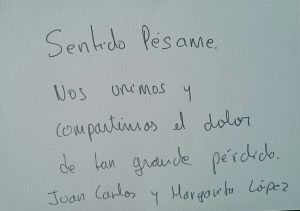 Sentido Pésame.
Nos unimos y
compartimos el dolor
de tan grande pérdida.
Juan Carlos y Margarita López